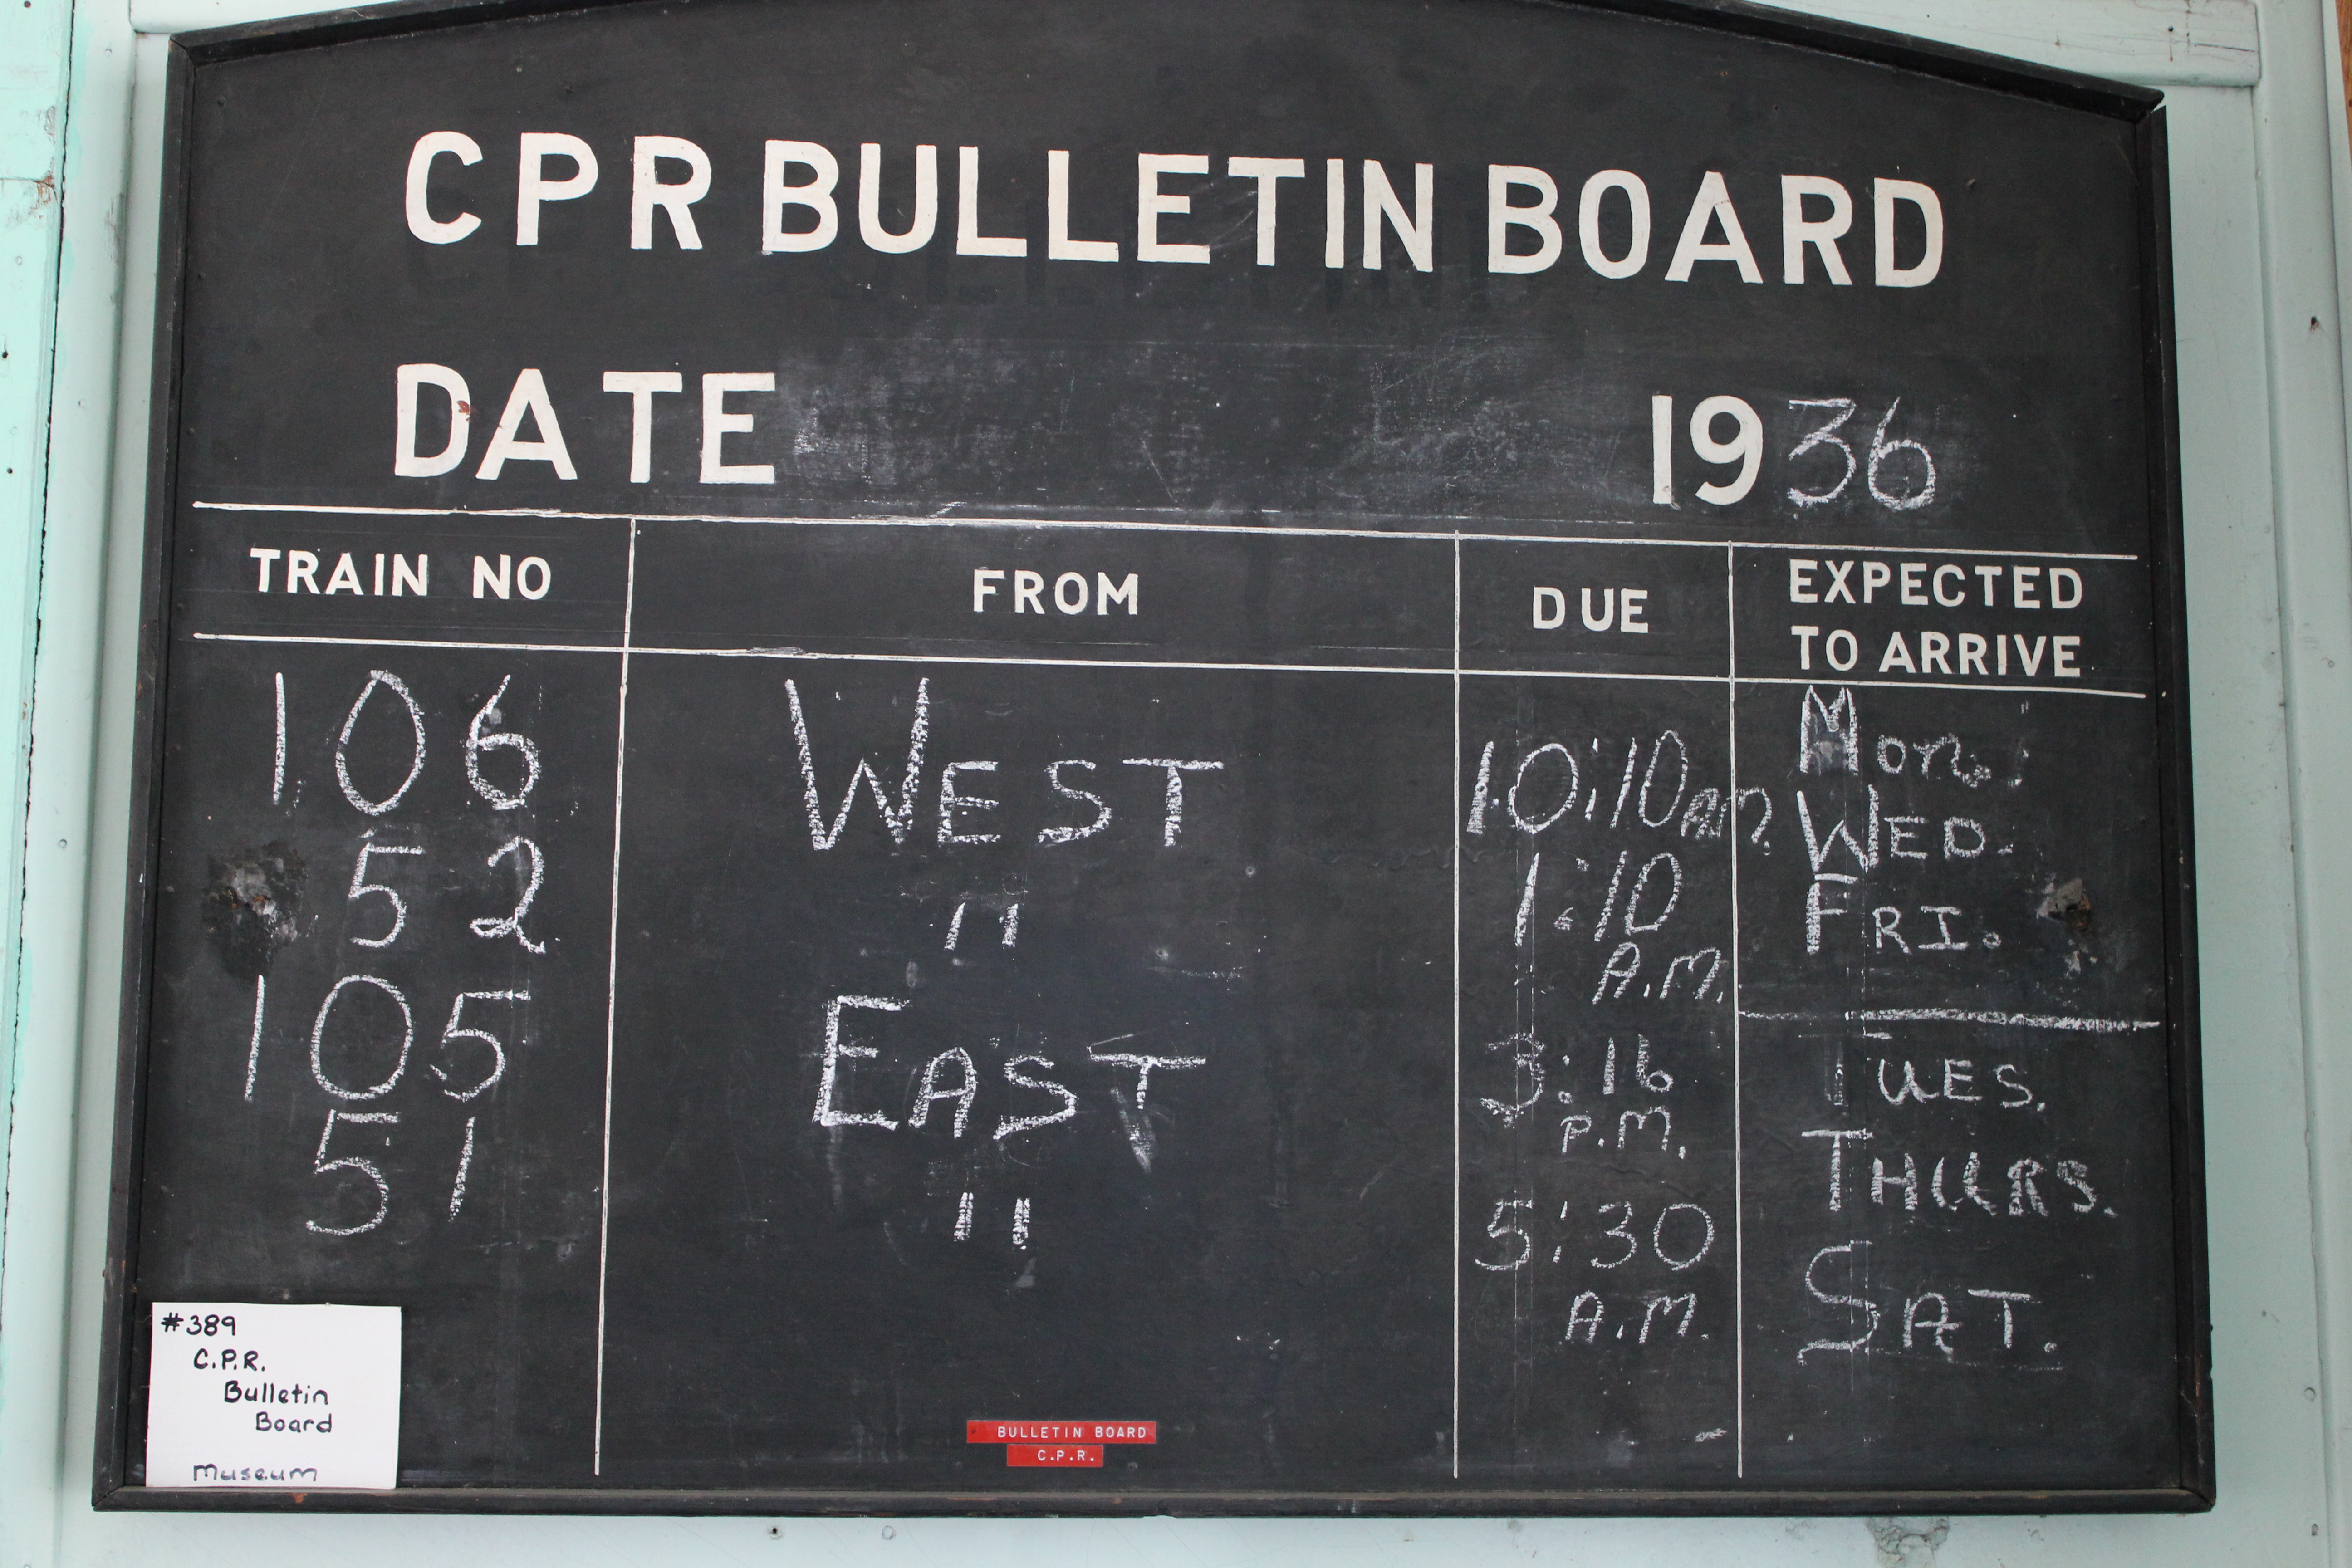 CPR BULLETIN BOARD
DATE 1936
TRAIN NO FROM DUE EXPECTED TO ARRIVE
106 WEST 10:10 AM. MON.
WED.
52 " 1:10 A.M. FRI.
105 EAST 3:16 P.M. TUES.
THURS.
51 " 5:30 A.M. SAT.
#389
C.P.R.
Bulletin
Board
Museum
BULLETIN BOARD
C.P.R.